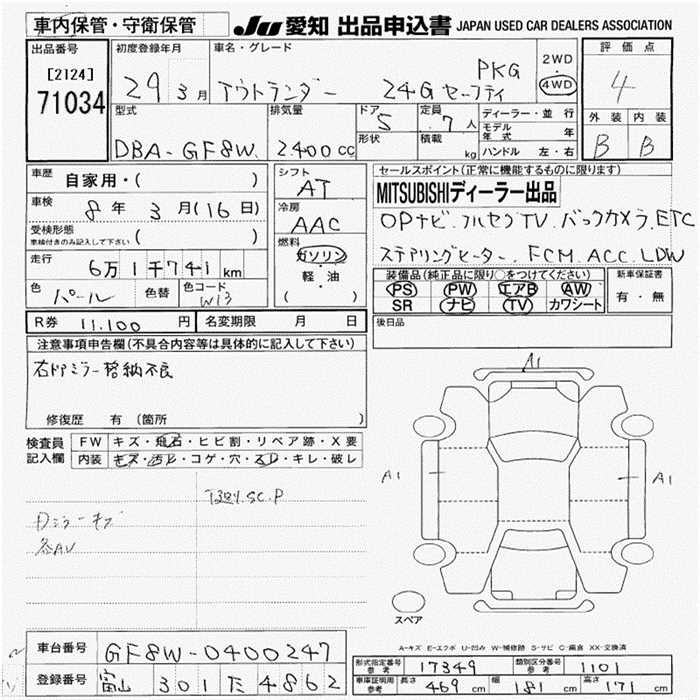 車内保管・守衛保管
JU 愛知 出品申込書 JAPAN USED CAR DEALERS ASSOCIATION
出品番号 初度登録年月 車名・グレード 評価点
[2124]
71034
29 3月 アウトランダー 24G セーフティ PKG 2WD 4WD 4
型式 排気量 ドア 定員 ディーラー・並行 外装 内装
DBA-GF8W 2.400cc 5 7人 モデル年式 年 B B
形状 積載 kg ハンドル 左・右
車歴 自家用・( ) シフト AT
セールスポイント(正常に機能するものに限ります)
MITSUBISHIディーラー出品
車検 8年 3月(16日) 冷房 AAC
OPナビ.フルセグTV.バックカメラ.ETC
受検形態 車検付きのみ記入して下さい ( ) 燃料 ガソリン・軽・油 ( )
ステアリングヒーター.FCM.ACC.LDW
走行 6万1千741km
装備品(純正品に限り○をつけてください) 新車保証書
PS PW エアB AW 有・無
SR ナビ TV カワシート
色 パール 色替 色コード W13
R券 11.100円 名変期限 月 日
後日品
注意事項申告欄(不具合内容等は具体的に記入して下さい)
右ドアミラー格納不良
修復歴 有 (箇所 )
検査員記入欄 FW キズ・飛石・ヒビ割・リペア跡・X要
内装 キズ・汚レ・コゲ・穴・スレ・キレ・破レ
Dミラーキズ
各AU
A1
A1
A1
スペア
A-キズ E-エクボ U-凹み W-補修跡 S-サビ C-腐食 XX-交換済
車台番号 GF8W-0400247
登録番号 富山 301 た 4862
形式指定番号 参考 17349 類別区分番号 参考 1101
車庫証明用 参考 長さ 469cm 幅 181cm 高さ 171cm